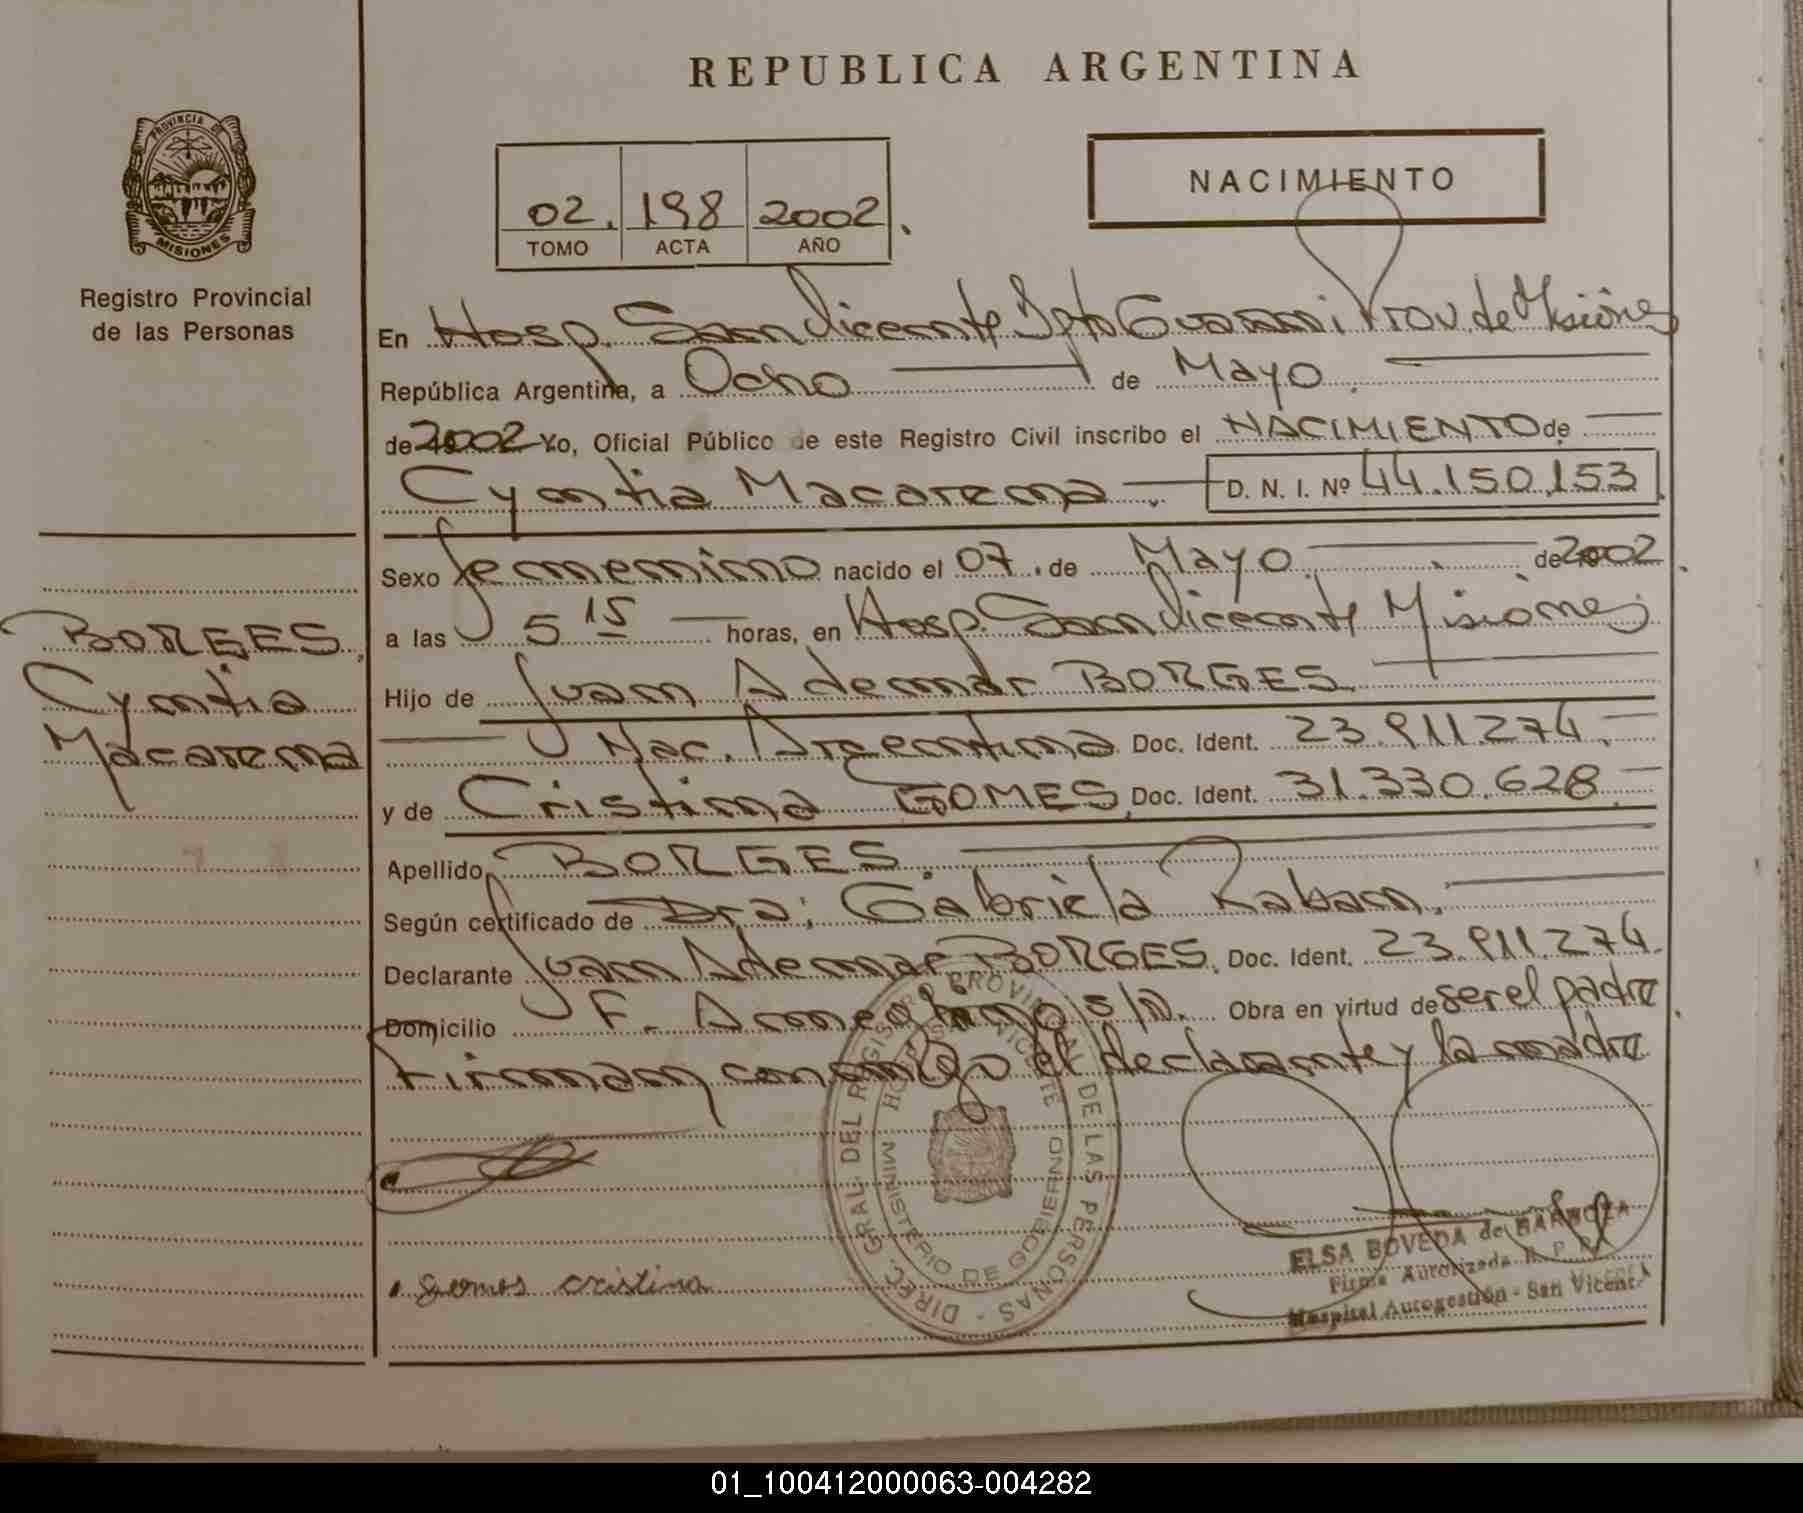 REPUBLICA ARGENTINA
PROVINCIA DE
MISIONES
Registro Provincial
de las Personas
02. 198 2002.
TOMO ACTA AÑO
NACIMIENTO
En Hosp. San Vicente Dpto Guarani Prov. de Misiones
República Argentina, a Ocho de Mayo.
de 2002 Yo, Oficial Público de este Registro Civil inscribo el NACIMIENTO de
Cyntia Macarena. D. N. I. Nº 44.150.153
Sexo femenino nacido el 07. de Mayo. de 2002.
BORGES,
Cyntia
Macarena
a las 5 15 horas, en Hosp. San Vicente Misiones
Hijo de Juan Ademar BORGES
Nac. Argentina Doc. Ident. 23.911.274.
y de Cristina GOMES, Doc. Ident. 31.330.628.
Apellido BORGES.
Según certificado de Dra: Gabriela Raban.
Declarante Juan Ademar BORGES, Doc. Ident. 23.911.274.
Domicilio F. Ameghino s/n. Obra en virtud de ser el padre
Firman conmigo el declarante y la madre
DIREC. GRAL. DEL REGISTRO PROVINCIAL DE LAS PERSONAS -
MINISTERIO DE GOBIERNO
gomes cristina
ELSA BOVEDA de BARBOZA
Firma Autorizada R. P. P.
Hospital Autogestión - San Vicente
01_100412000063-004282